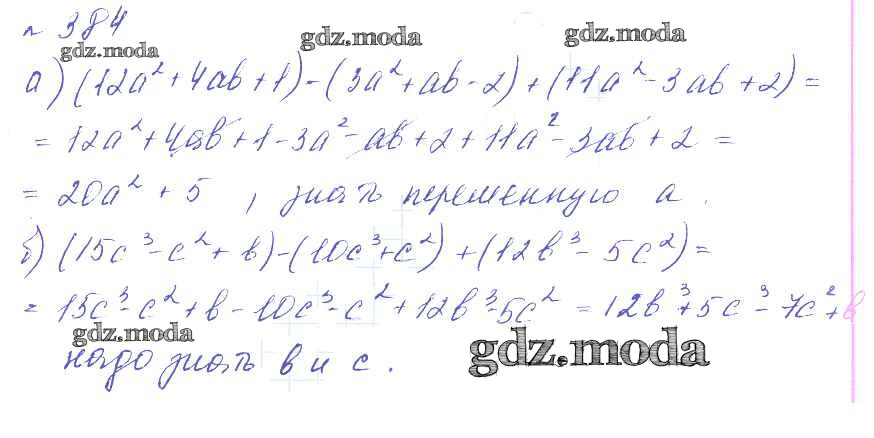 № 384
gdz.moda gdz.moda gdz.moda
а) (12a² + 4ab + 1) - (3a² + ab - 2) + (11a² - 3ab + 2) =
= 12a² + 4ab + 1 - 3a² - ab + 2 + 11a² - 3ab + 2 =
= 20a² + 5 , знать переменную a .
б) (15c³ - c² + b) - (10c³ + c²) + (12b³ - 5c²) =
= 15c³ - c² + b - 10c³ - c² + 12b³ - 5c² = 12b³ + 5c³ - 7c² + b
gdz.moda gdz.moda
надо знать b и c .